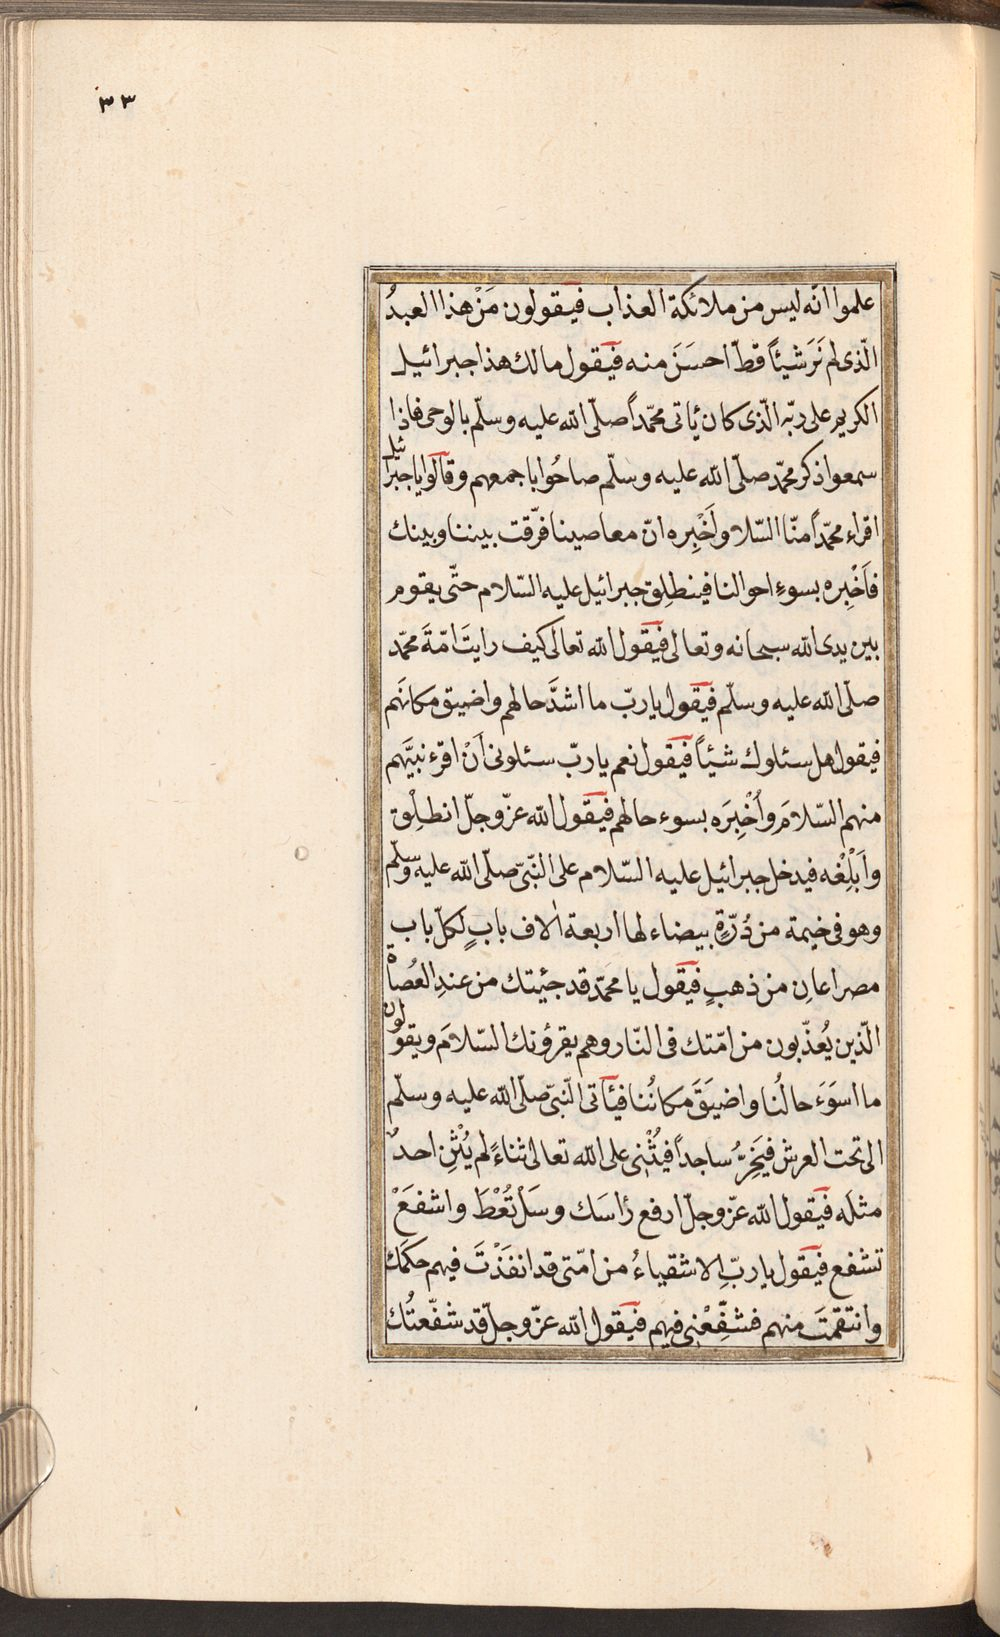 ٣٣
علموا انّه ليس من ملائكة العذاب فيقولون مَنْ هذا العبدُ
الّذى لم نَرَ شيئاً قطّ احسَنَ منه فيقول مالك هذا جبرائيل
الكريم على ربّه الّذى كان يأتى محمّداً صلّى الله عليه وسلّم بالوحى فاذا
سمعوا ذكر محمّد صلّى الله عليه وسلّم صاحُوا باجمعهم وقالوا يا جبرائيل
اقراء محمّداً منّا السّلام وأَخْبِره انّ معاصينا فرّقت بيننا وبينك
فاَخْبِره بسوءِ احوالنا فينطلِق جبرائيل عليه السّلام حتّى يقوم
بين يدى الله سبحانه وتعالى فيقول الله تعالى كيف رايتَ امّةَ محمّد
صلّى الله عليه وسلّم فيقول يا ربّ ما اشدَّ حالهم واضيق مكانَهم
فيقول هل سئلوك شيئاً فيقول نعم يا ربّ سئلونى اَنْ اقرء نبيَّهم
منهم السّلامَ وأُخْبِرَه بسوء حالهم فيقول الله عزّ وجلّ انطلِْق
واَبْلِغْه فيدخل جبرائيل عليه السّلام على النّبىّ صلّى الله عليه وسلّم
وهو فى خيمة من دُرّةٍ بيضاء لها اربعة اٰلاف بابٍ لكلّ باب
مصراعانِ من ذهبٍ فيقول يا محمّد قد جئيتك من عندِ العُصاة
الّذين يُعذّبون من امّتك فى النّار وهم يقرؤنك السّلامَ ويقولون
ما اسوَءَ حالُنا واضيَقَ مكانُنا فيأتى النّبىّ صلّى الله عليه وسلّم
الى تحت العرش فيَخِرُّ ساجداً فيُثْنِى على الله تعالى ثناءً لم يُثْنِ احدٌ
مثلَه فيقول الله عزّ وجلّ ارفع رأسَك وسَلْ تُعْطَ واشفَعْ
تشفع فيقول يا ربِّ الاشقياءُ من امّتى قد انفَذْتَ فيهم حكمَك
وانتقمْتَ منهم فشفِّعْنِى فيهم فيقول الله عزّ وجلّ قد شفّعتُك